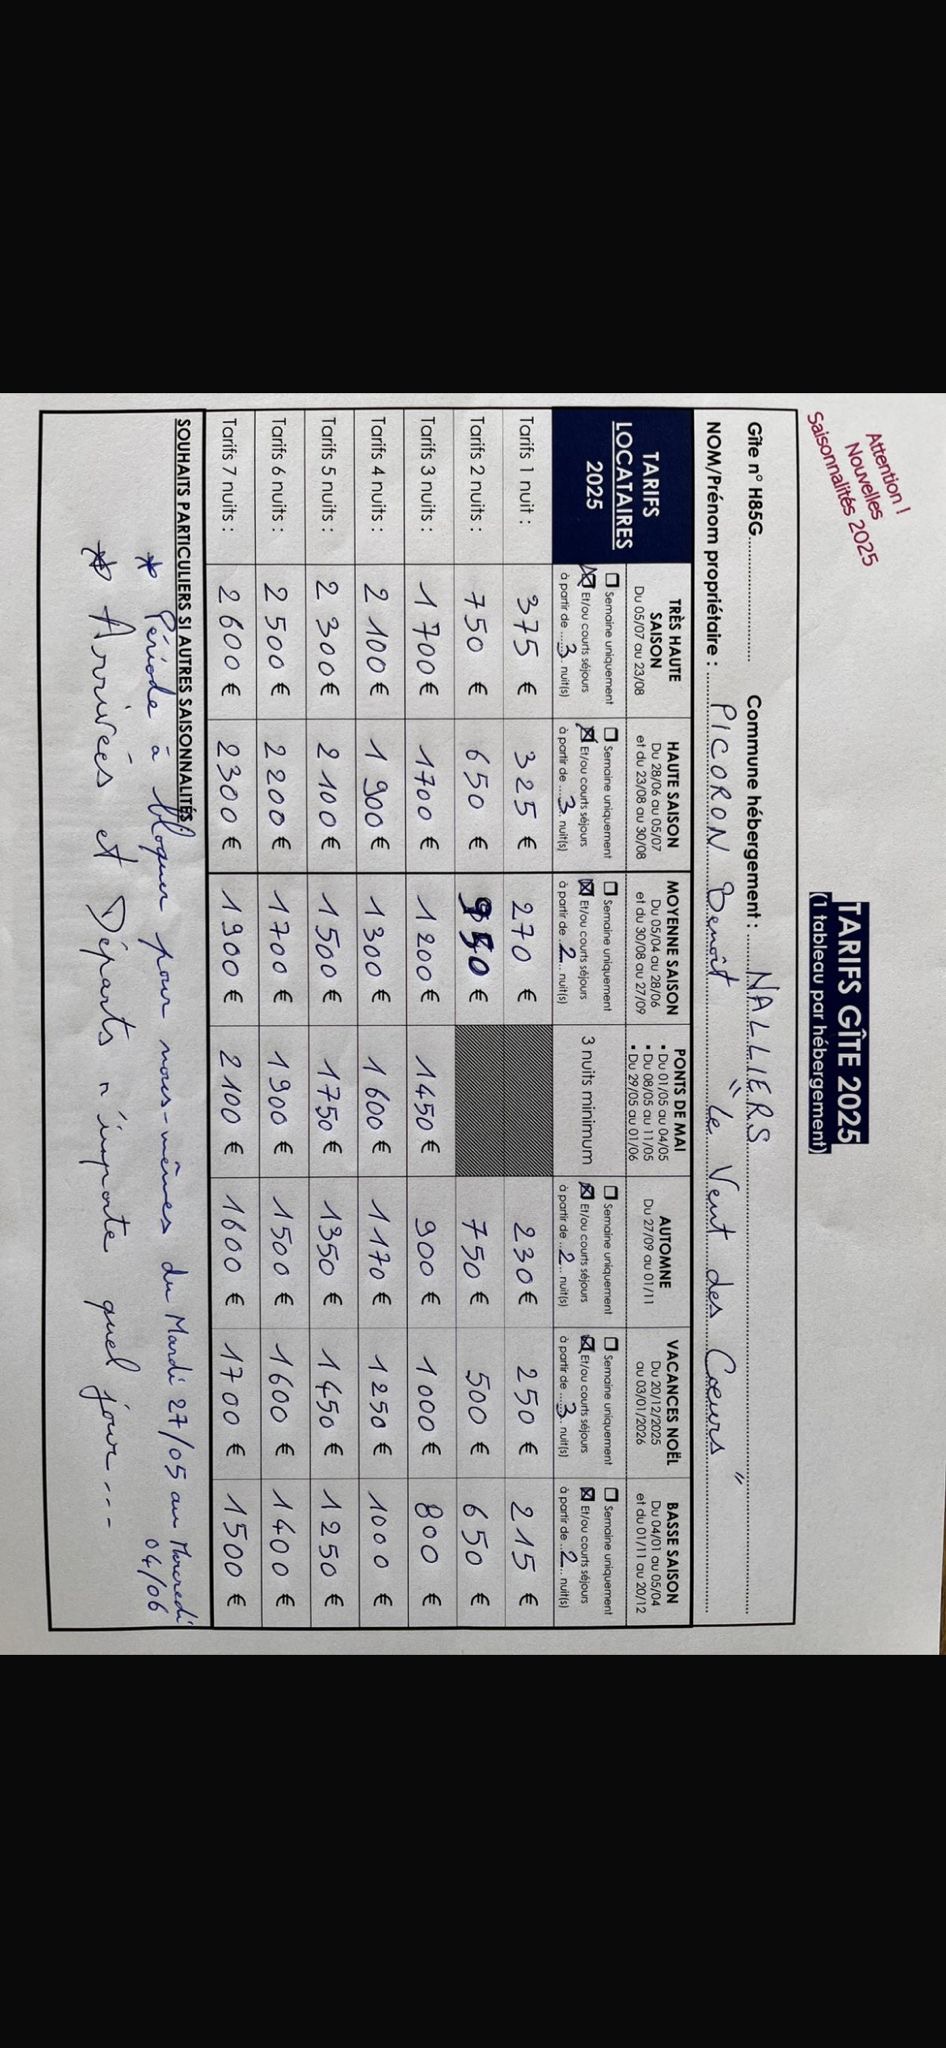 Attention !
Nouvelles
Saisonnalités 2025
TARIFS GÎTE 2025
(1 tableau par hébergement)
Gîte n° H85G.................... Commune hébergement : NALLIERS
NOM/Prénom propriétaire : PICORON Benoît "Le Vent des Coeurs"
TARIFS LOCATAIRES 2025
TRÈS HAUTE SAISON
Du 05/07 au 23/08
HAUTE SAISON
Du 28/06 au 05/07
et du 23/08 au 30/08
MOYENNE SAISON
Du 05/04 au 28/06
et du 30/08 au 27/09
PONTS DE MAI
• Du 01/05 au 04/05
• Du 08/05 au 11/05
• Du 29/05 au 01/06
AUTOMNE
Du 27/09 au 01/11
VACANCES NOËL
Du 20/12/2025
au 03/01/2026
BASSE SAISON
Du 04/01 au 05/04
et du 01/11 au 20/12
☐ Semaine uniquement
☒ Et/ou courts séjours
à partir de ...3.. nuit(s)
☐ Semaine uniquement
☒ Et/ou courts séjours
à partir de ...3.. nuit(s)
☐ Semaine uniquement
☒ Et/ou courts séjours
à partir de ..2... nuit(s)
3 nuits minimum
☐ Semaine uniquement
☒ Et/ou courts séjours
à partir de ..2... nuit(s)
☐ Semaine uniquement
☒ Et/ou courts séjours
à partir de ...3.. nuit(s)
☐ Semaine uniquement
☒ Et/ou courts séjours
à partir de ..2... nuit(s)
Tarifs 1 nuit : 375 € 325 € 270 € 230 € 250 € 215 €
Tarifs 2 nuits : 750 € 650 € € 750 € 500 € 650 €
Tarifs 3 nuits : 1700 € 1700 € 1200 € 1450 € 900 € 1000 € 800 €
Tarifs 4 nuits : 2 100 € 1 900 € 1300 € 1600 € 1170 € 1250 € 1000 €
Tarifs 5 nuits : 2 300 € 2 100 € 1500 € 1750 € 1350 € 1450 € 1250 €
Tarifs 6 nuits : 2 500 € 2200 € 1700 € 1900 € 1500 € 1600 € 1400 €
Tarifs 7 nuits : 2 600 € 2300 € 1900 € 2100 € 1600 € 1700 € 1500 €
SOUHAITS PARTICULIERS SI AUTRES SAISONNALITÉS
* Période à bloquer pour nous-mêmes du Mardi 27/05 au Mercredi
04/06
* Arrivées et Départs n'importe quel jour ---